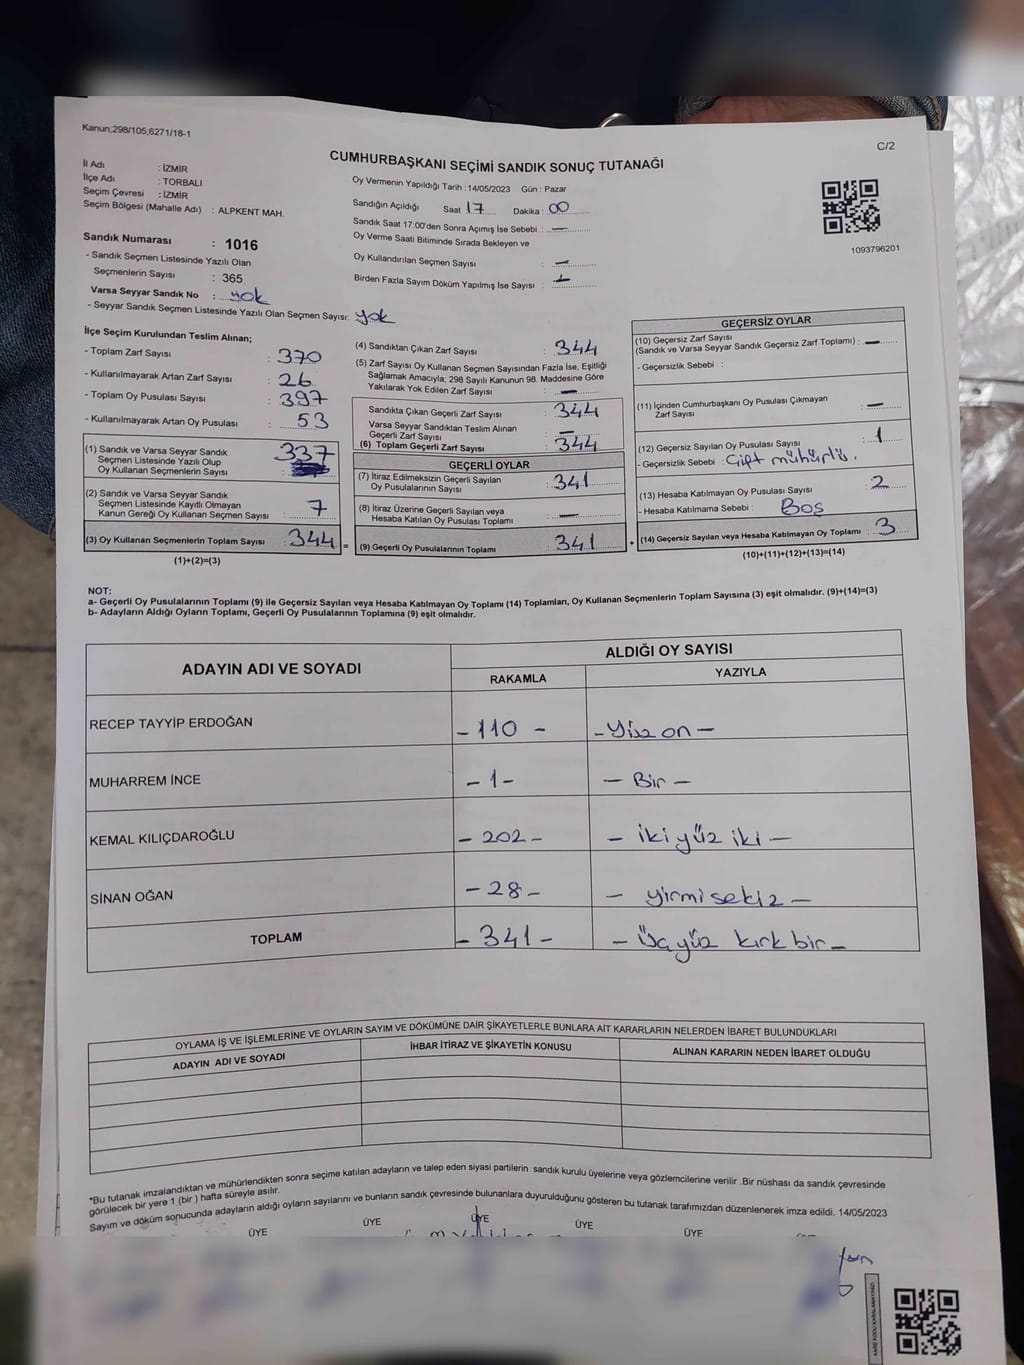 Kanun;298/105;6271/18-1
C/2
CUMHURBAŞKANI SEÇİMİ SANDIK SONUÇ TUTANAĞI
İl Adı : İZMİR
İlçe Adı : TORBALI
Seçim Çevresi : İZMİR
Seçim Bölgesi (Mahalle Adı) : ALPKENT MAH.
Sandık Numarası : 1016
- Sandık Seçmen Listesinde Yazılı Olan
Seçmenlerin Sayısı : 365
Varsa Seyyar Sandık No : yok
- Seyyar Sandık Seçmen Listesinde Yazılı Olan Seçmen Sayısı: yok
Oy Vermenin Yapıldığı Tarih :14/05/2023 Gün : Pazar
Sandığın Açıldığı Saat 17 Dakika : 00
Sandık Saat 17:00'den Sonra Açımış İse Sebebi : —
Oy Verme Saati Bitiminde Sırada Bekleyen ve
Oy Kullandırılan Seçmen Sayısı : —
Birden Fazla Sayım Döküm Yapılmış İse Sayısı :
1093796201
İlçe Seçim Kurulundan Teslim Alınan;
- Toplam Zarf Sayısı : 370
- Kullanılmayarak Artan Zarf Sayısı : 26
- Toplam Oy Pusulası Sayısı : 397
- Kullanılmayarak Artan Oy Pusulası : 53
(1) Sandık ve Varsa Seyyar Sandık
Seçmen Listesinde Yazılı Olup
Oy Kullanan Seçmenlerin Sayısı : 337
(2) Sandık ve Varsa Seyyar Sandık
Seçmen Listesinde Kayıtlı Olmayan
Kanun Gereği Oy Kullanan Seçmen Sayısı : 7
(3) Oy Kullanan Seçmenlerin Toplam Sayısı : 344
(1)+(2)=(3)
(4) Sandıktan Çıkan Zarf Sayısı : 344
(5) Zarf Sayısı Oy Kullanan Seçmen Sayısından Fazla İse, Eşitliği
Sağlamak Amacıyla; 298 Sayılı Kanunun 98. Maddesine Göre
Yakılarak Yok Edilen Zarf Sayısı : —
Sandıkta Çıkan Geçerli Zarf Sayısı : 344
Varsa Seyyar Sandıktan Teslim Alınan
Geçerli Zarf Sayısı : —
(6) Toplam Geçerli Zarf Sayısı : 344
GEÇERLİ OYLAR
(7) İtiraz Edilmeksizin Geçerli Sayılan
Oy Pusulalarının Sayısı : 341
(8) İtiraz Üzerine Geçerli Sayılan veya
Hesaba Katılan Oy Pusulası Toplamı : —
= (9) Geçerli Oy Pusulalarının Toplamı : 341
GEÇERSİZ OYLAR
(10) Geçersiz Zarf Sayısı
(Sandık ve Varsa Seyyar Sandık Geçersiz Zarf Toplamı) : —
- Geçersizlik Sebebi :
(11) İçinden Cumhurbaşkanı Oy Pusulası Çıkmayan
Zarf Sayısı : —
(12) Geçersiz Sayılan Oy Pusulası Sayısı : 1
- Geçersizlik Sebebi : Çift mühürlü.
(13) Hesaba Katılmayan Oy Pusulası Sayısı : 2
- Hesaba Katılmama Sebebi : Boş
+ (14) Geçersiz Sayılan veya Hesaba Katılmayan Oy Toplamı : 3
(10)+(11)+(12)+(13)=(14)
NOT:
a- Geçerli Oy Pusulalarının Toplamı (9) ile Geçersiz Sayılan veya Hesaba Katılmayan Oy Toplamı (14) Toplamları, Oy Kullanan Seçmenlerin Toplam Sayısına (3) eşit olmalıdır. (9)+(14)=(3)
b- Adayların Aldığı Oyların Toplamı, Geçerli Oy Pusulalarının Toplamına (9) eşit olmalıdır.
ADAYIN ADI VE SOYADI
ALDIĞI OY SAYISI
RAKAMLA YAZIYLA
RECEP TAYYİP ERDOĞAN - 110 - - Yüz on -
MUHARREM İNCE - 1 - - Bir -
KEMAL KILIÇDAROĞLU - 202 - - iki yüz iki -
SİNAN OĞAN - 28 - - yirmi sekiz -
TOPLAM - 341 - - Üç yüz kırk bir -
OYLAMA İŞ VE İŞLEMLERİNE VE OYLARIN SAYIM VE DÖKÜMÜNE DAİR ŞİKAYETLERLE BUNLARA AİT KARARLARIN NELERDEN İBARET BULUNDUKLARI
ADAYIN ADI VE SOYADI İHBAR İTİRAZ VE ŞİKAYETİN KONUSU ALINAN KARARIN NEDEN İBARET OLDUĞU
*Bu tutanak imzalandıktan ve mühürlendikten sonra seçime katılan adayların ve talep eden siyasi partilerin sandık kurulu üyelerine veya gözlemcilerine verilir .Bir nüshası da sandık çevresinde
görülecek bir yere 1 (bir ) hafta süreyle asılır.
Sayım ve döküm sonucunda adayların aldığı oyların sayılarını ve bunların sandık çevresinde bulunanlara duyurulduğunu gösteren bu tutanak tarafımızdan düzenlenerek imza edildi. 14/05/2023
ÜYE ÜYE ÜYE ÜYE ÜYE
KARE KODU KARALAMAYINIZ!